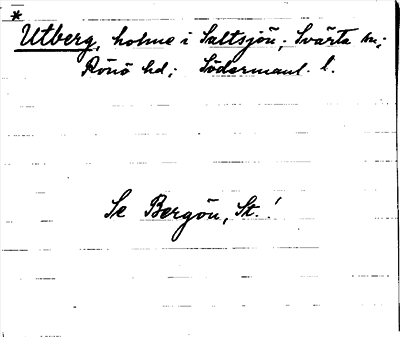 *
Utberg, holme i Saltsjön; Svärta sn;
Rönö hd; Södermanl. l.
Se Bergön, St.!